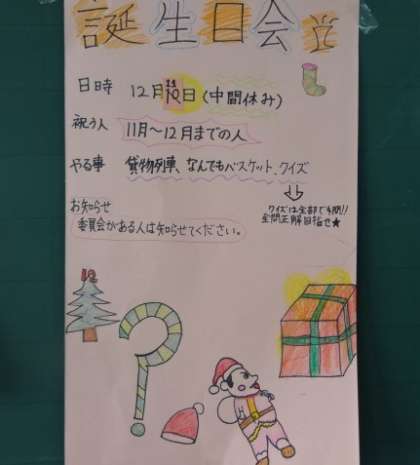 誕生日会
日時 12月 日(中間休み)
祝う人 11月～12月までの人
やる事 貨物列車、なんでもバスケット、クイズ
クイズは全部で4問!!
全問正解目指せ★
お知らせ
委員会がある人は知らせてください。